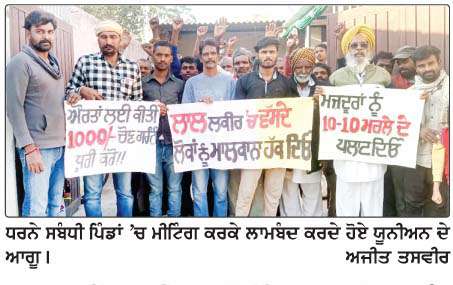 ਔਰਤਾਂ ਲਈ ਕੀਤੀ
1000/- ਚੋਣ ਗਰੰਟੀ
ਪੂਰੀ ਕਰੋ!!
ਲਾਲ ਲਕੀਰ 'ਚ ਵੱਸਦੇ
ਲੋਕਾਂ ਨੂੰ ਮਾਲਕਾਨਾ ਹੱਕ ਦਿਓ
ਮਜ਼ਦੂਰਾਂ ਨੂੰ
10-10 ਮਰਲੇ ਦੇ
ਪਲਾਟ ਦਿਓ
ਧਰਨੇ ਸਬੰਧੀ ਪਿੰਡਾਂ 'ਚ ਮੀਟਿੰਗ ਕਰਕੇ ਲਾਮਬੰਦ ਕਰਦੇ ਹੋਏ ਯੂਨੀਅਨ ਦੇ
ਆਗੂ। ਅਜੀਤ ਤਸਵੀਰ